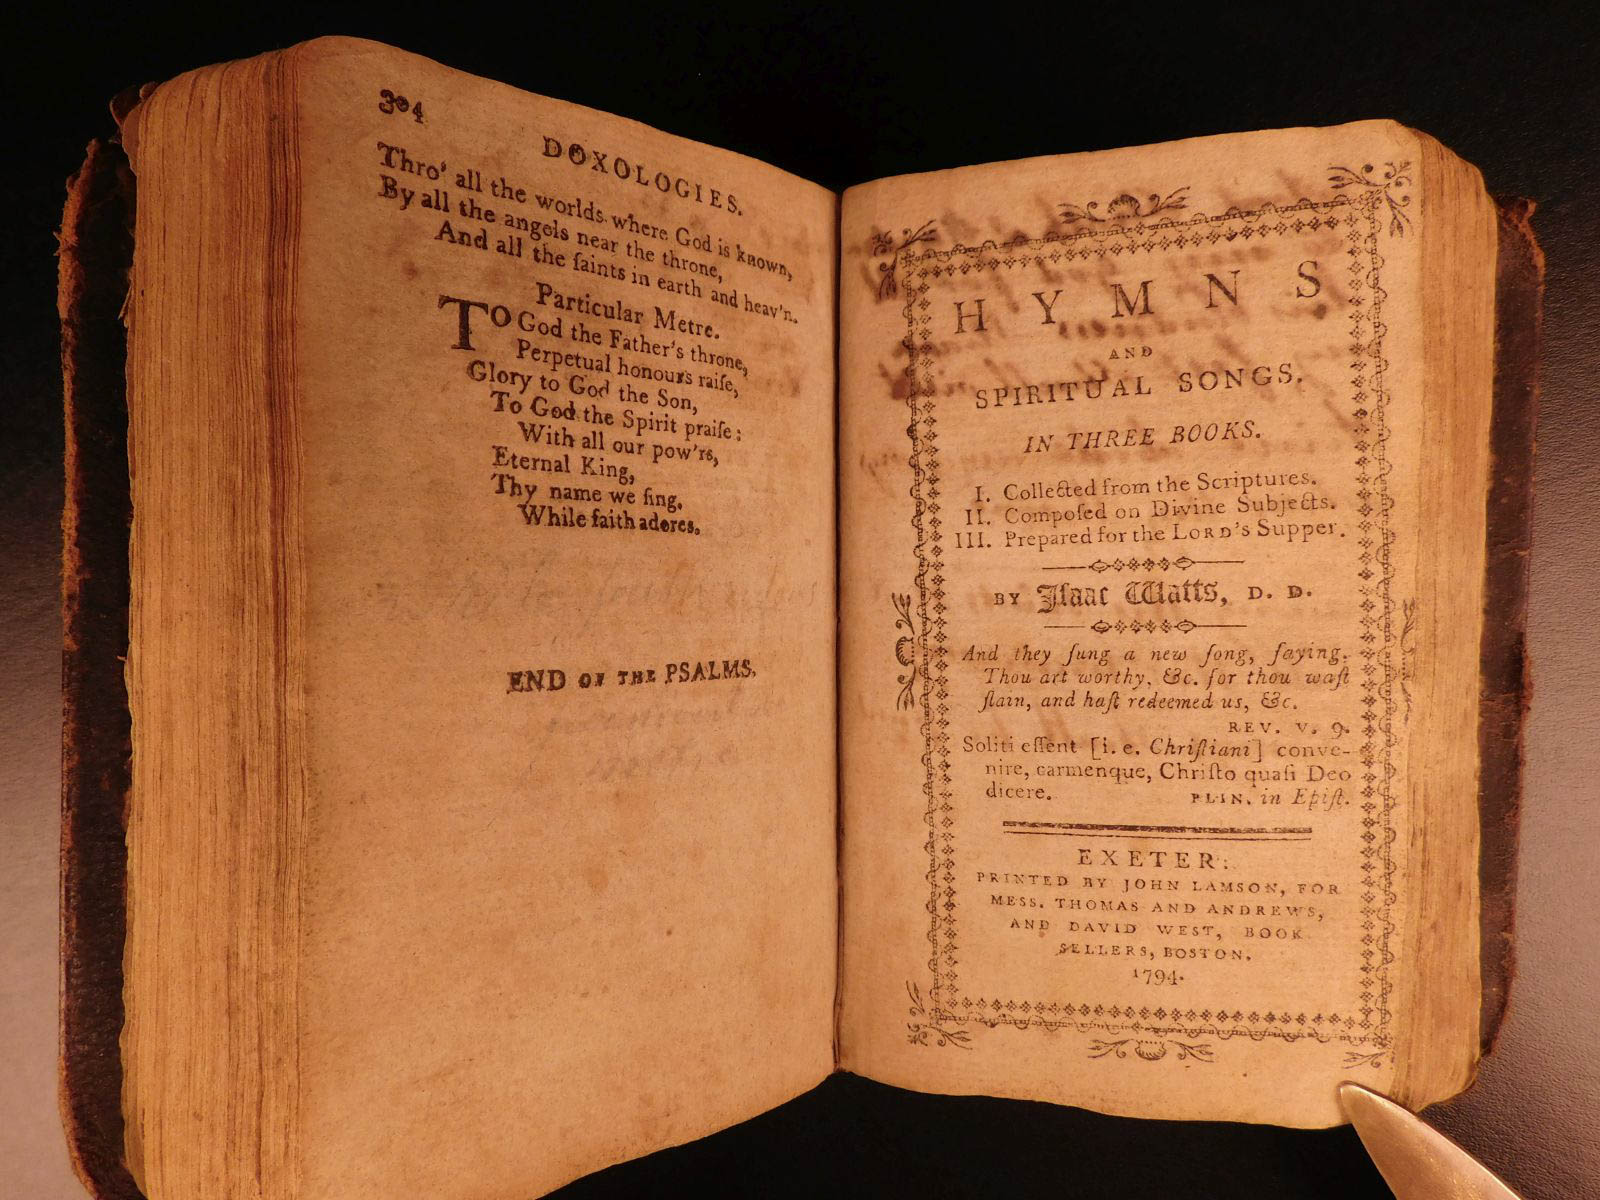 304
DOXOLOGIES.
Thro' all the worlds where God is known,
By all the angels near the throne,
And all the ſaints in earth and heav'n.
Particular Metre.
TO God the Father's throne,
Perpetual honours raiſe,
Glory to God the Son,
To God the Spirit praiſe:
With all our pow'rs,
Eternal King,
Thy name we ſing.
While faith adores.
END OF THE PSALMS.
HYMNS
AND
SPIRITUAL SONGS.
IN THREE BOOKS.
I. Collected from the Scriptures.
II. Compoſed on Divine Subjects.
III. Prepared for the LORD'S Supper.
BY Iſaac Watts, D. D.
And they ſung a new ſong, ſaying,
Thou art worthy, &c. for thou waſt
ſlain, and haſt redeemed us, &c.
REV. V. 9.
Soliti eſſent [i. e. Chriſtiani] conve-
nire, carmenque, Chriſto quaſi Deo
dicere. PLIN. in Epiſt.
EXETER:
PRINTED BY JOHN LAMSON, FOR
MESS. THOMAS AND ANDREWS,
AND DAVID WEST, BOOK
SELLERS, BOSTON.
1794.